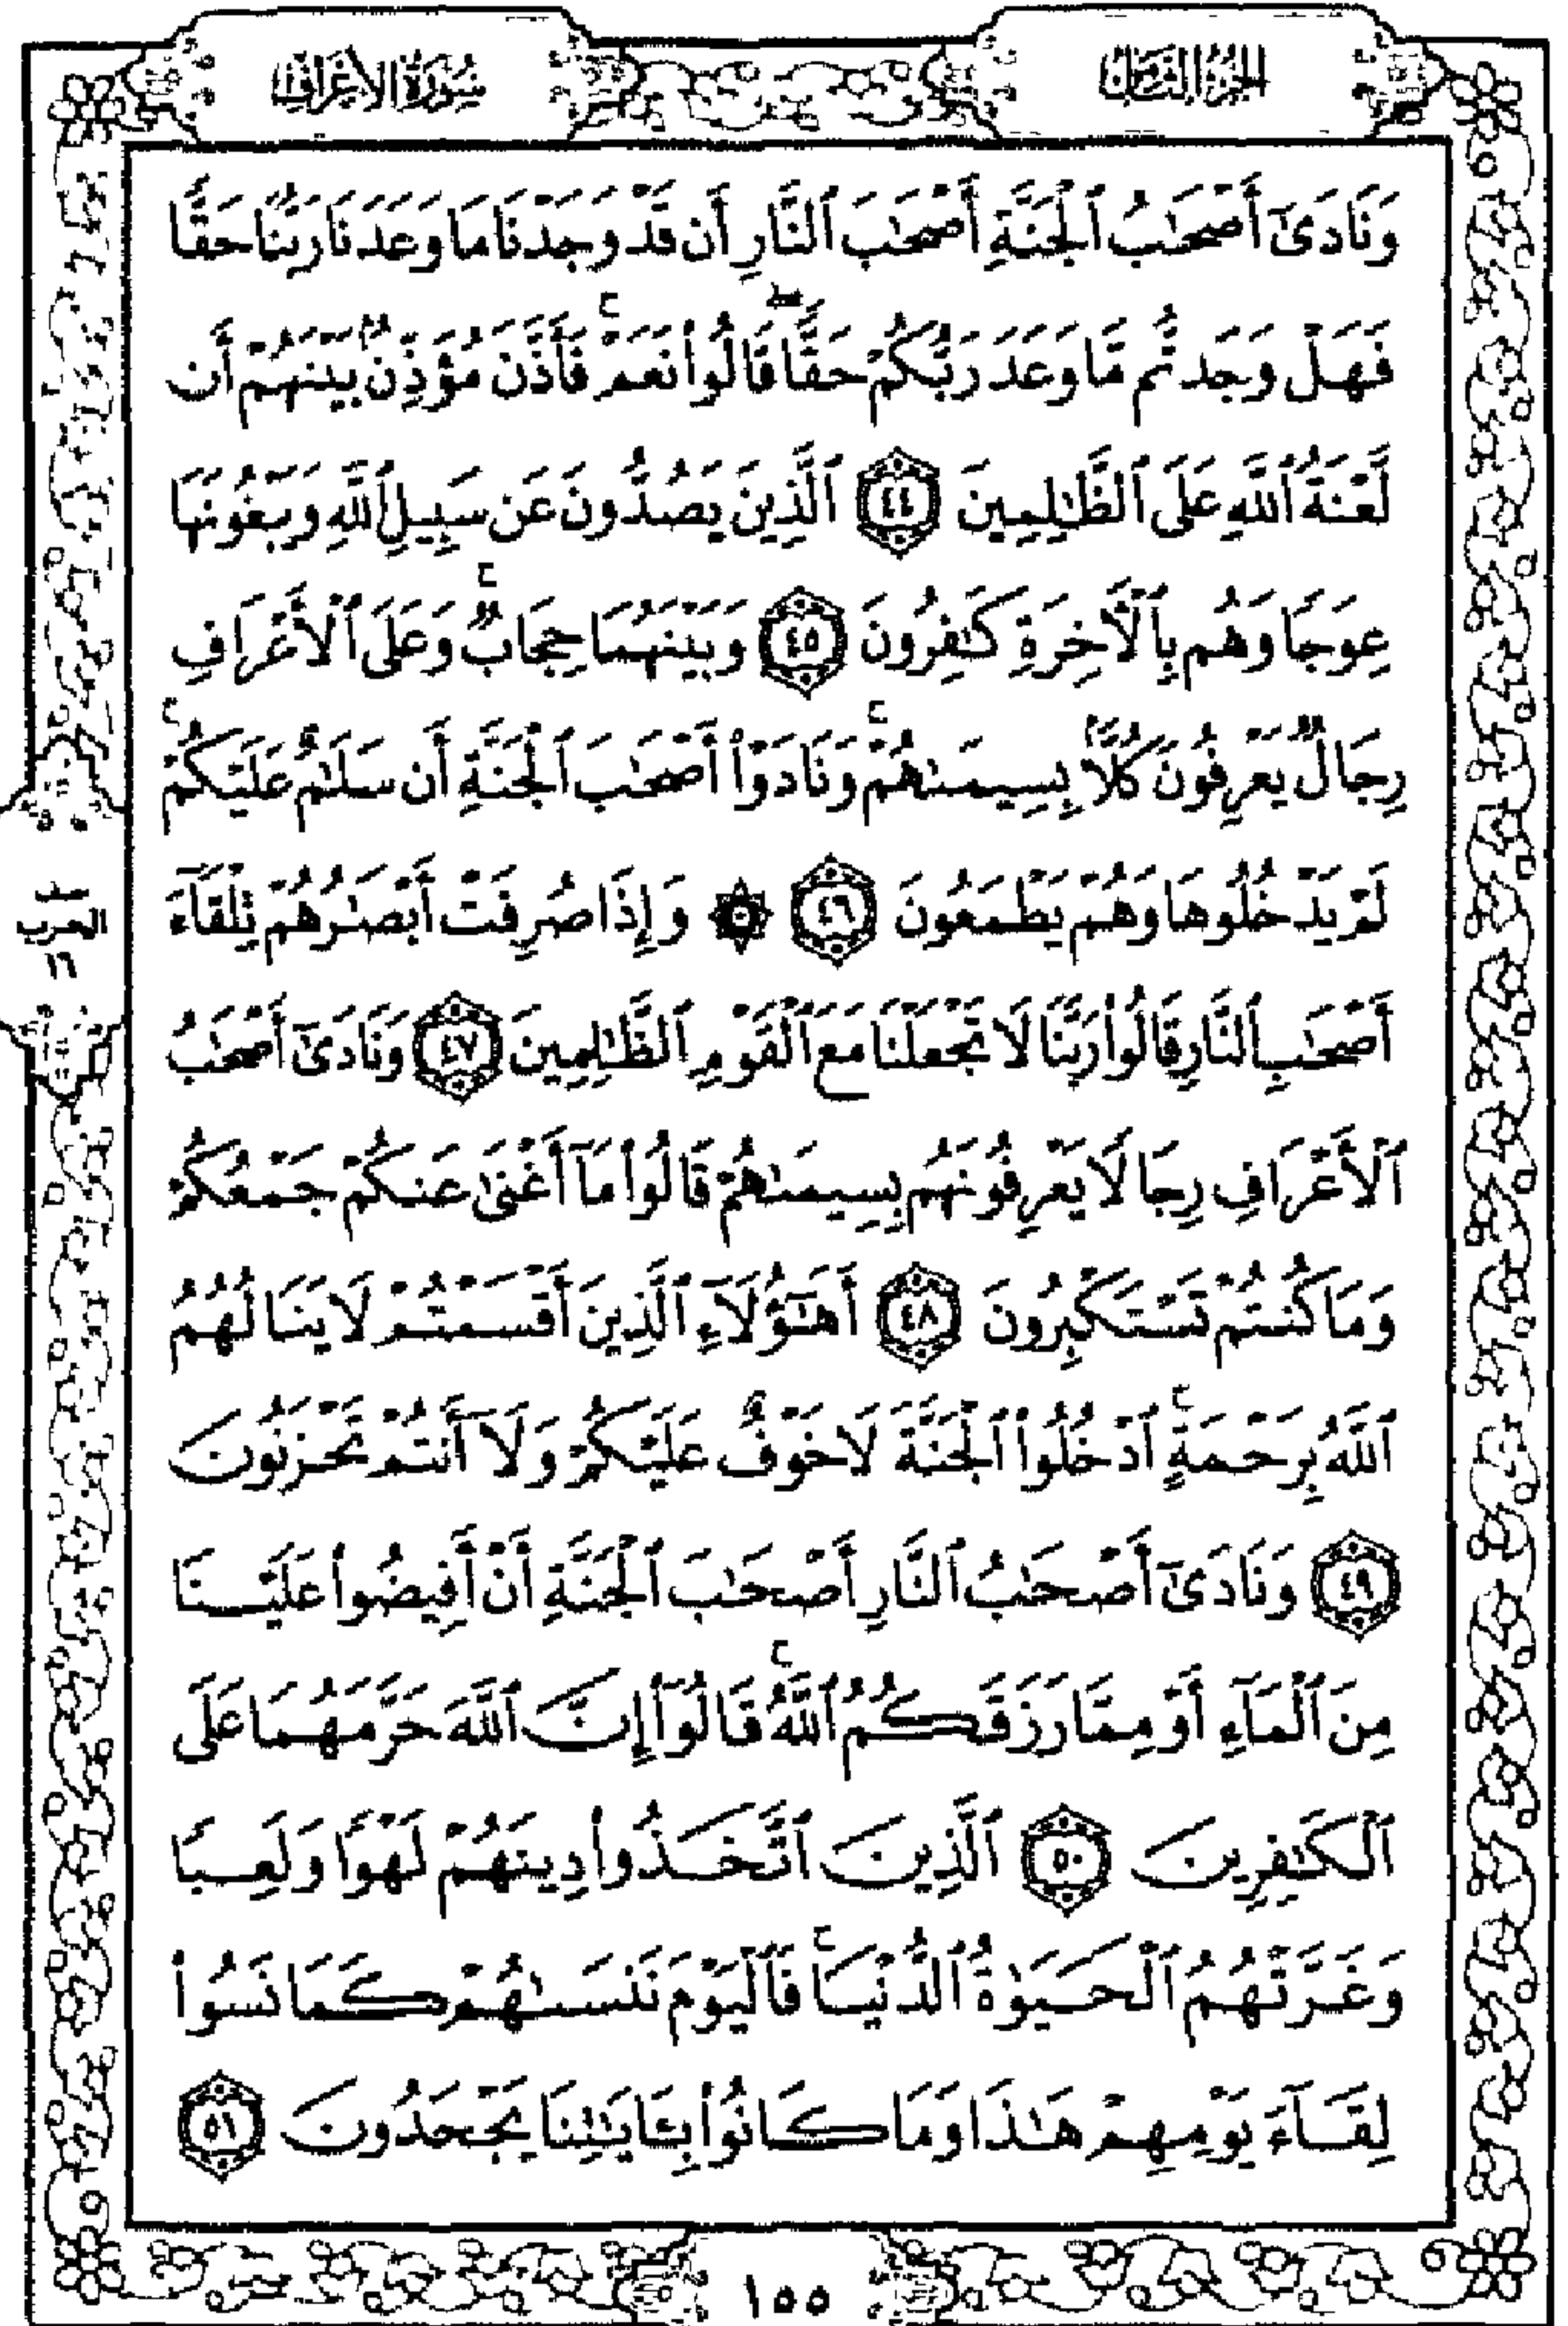 الجزء الثامن
سورة الأعراف
وَنَادَىٰٓ أَصْحَٰبُ ٱلْجَنَّةِ أَصْحَٰبَ ٱلنَّارِ أَن قَدْ وَجَدْنَا مَا وَعَدَنَا رَبُّنَا حَقًّا
فَهَلْ وَجَدتُّم مَّا وَعَدَ رَبُّكُمْ حَقًّا ۖ قَالُوا۟ نَعَمْ ۚ فَأَذَّنَ مُؤَذِّنٌۢ بَيْنَهُمْ أَن
لَّعْنَةُ ٱللَّهِ عَلَى ٱلظَّٰلِمِينَ ٤٤ ٱلَّذِينَ يَصُدُّونَ عَن سَبِيلِ ٱللَّهِ وَيَبْغُونَهَا
عِوَجًا وَهُم بِٱلْءَاخِرَةِ كَٰفِرُونَ ٤٥ وَبَيْنَهُمَا حِجَابٌ ۚ وَعَلَى ٱلْأَعْرَافِ
رِجَالٌ يَعْرِفُونَ كُلًّۢا بِسِيمَىٰهُمْ ۚ وَنَادَوْا۟ أَصْحَٰبَ ٱلْجَنَّةِ أَن سَلَٰمٌ عَلَيْكُمْ ۚ
لَمْ يَدْخُلُوهَا وَهُمْ يَطْمَعُونَ ٤٦ ۞ وَإِذَا صُرِفَتْ أَبْصَٰرُهُمْ تِلْقَآءَ
أَصْحَٰبِ ٱلنَّارِ قَالُوا۟ رَبَّنَا لَا تَجْعَلْنَا مَعَ ٱلْقَوْمِ ٱلظَّٰلِمِينَ ٤٧ وَنَادَىٰٓ أَصْحَٰبُ
ٱلْأَعْرَافِ رِجَالًا يَعْرِفُونَهُم بِسِيمَىٰهُمْ قَالُوا۟ مَآ أَغْنَىٰ عَنكُمْ جَمْعُكُمْ
وَمَا كُنتُمْ تَسْتَكْبِرُونَ ٤٨ أَهَٰٓؤُلَآءِ ٱلَّذِينَ أَقْسَمْتُمْ لَا يَنَالُهُمُ
ٱللَّهُ بِرَحْمَةٍ ۚ ٱدْخُلُوا۟ ٱلْجَنَّةَ لَا خَوْفٌ عَلَيْكُمْ وَلَآ أَنتُمْ تَحْزَنُونَ
٤٩ وَنَادَىٰٓ أَصْحَٰبُ ٱلنَّارِ أَصْحَٰبَ ٱلْجَنَّةِ أَنْ أَفِيضُوا۟ عَلَيْنَا
مِنَ ٱلْمَآءِ أَوْ مِمَّا رَزَقَكُمُ ٱللَّهُ ۚ قَالُوٓا۟ إِنَّ ٱللَّهَ حَرَّمَهُمَا عَلَى
ٱلْكَٰفِرِينَ ٥٠ ٱلَّذِينَ ٱتَّخَذُوا۟ دِينَهُمْ لَهْوًا وَلَعِبًا
وَغَرَّتْهُمُ ٱلْحَيَوٰةُ ٱلدُّنْيَا ۚ فَٱلْيَوْمَ نَنسَىٰهُمْ كَمَا نَسُوا۟
لِقَآءَ يَوْمِهِمْ هَٰذَا وَمَا كَانُوا۟ بِـَٔايَٰتِنَا يَجْحَدُونَ ٥١
١٥٥